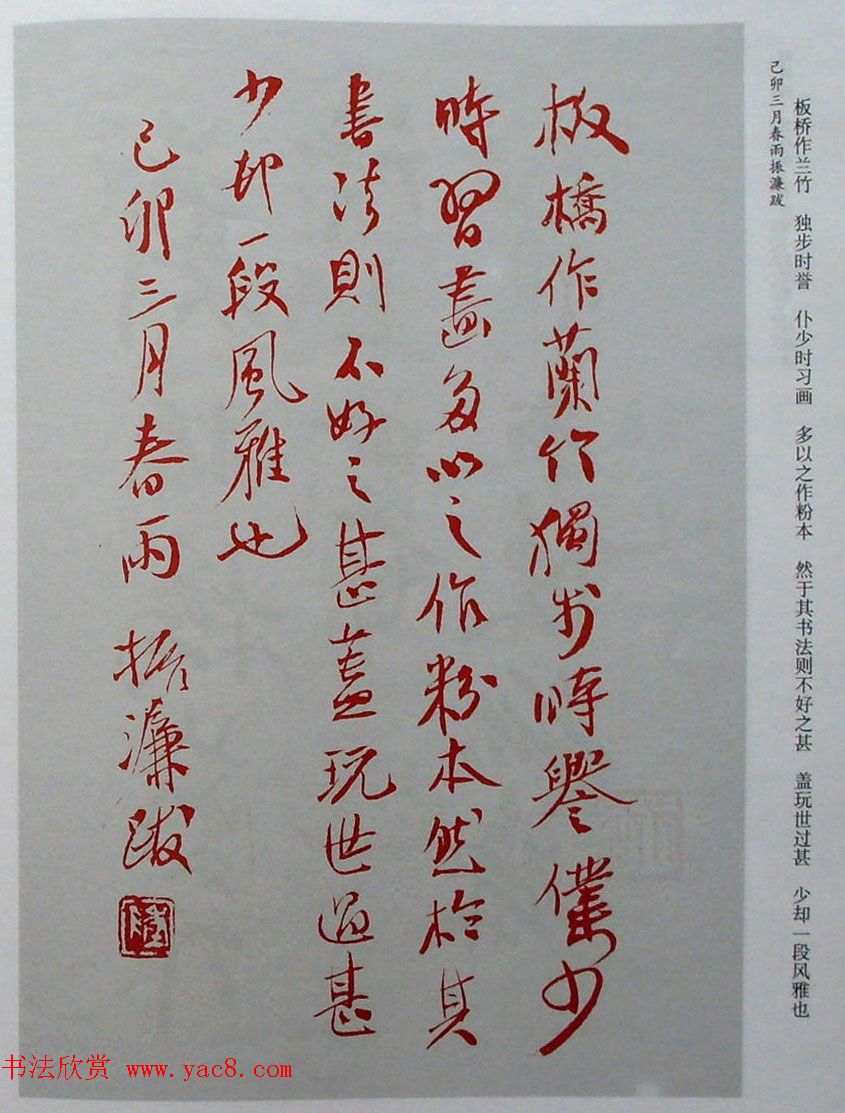 板桥作兰竹 独步时誉 仆少时习画 多以之作粉本 然于其书法则不好之甚 盖玩世过甚 少却一段风雅也
己卯三月春雨振濂跋
板橋作蘭竹獨步時譽僕少
時習畫多以之作粉本然於其
書法則不好之甚蓋玩世過甚
少却一段風雅也
己卯三月春雨 振濂跋
书法欣赏 www.yac8.com